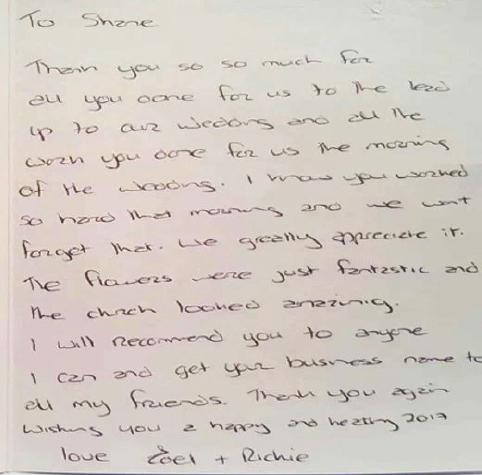 To Shane
Thank you so so much for
all you done for us to the lead
up to our wedding and all the
work you done for us the morning
of the wedding. I know you worked
so hard that morning and we wont
forget that. We greatly appreciate it.
The flowers were just fantastic and
the church looked amazing.
I will recommend you to anyone
I can and get your business name to
all my friends. Thank you again
Wishing you a happy and healthy 2017
love Zoel + Richie